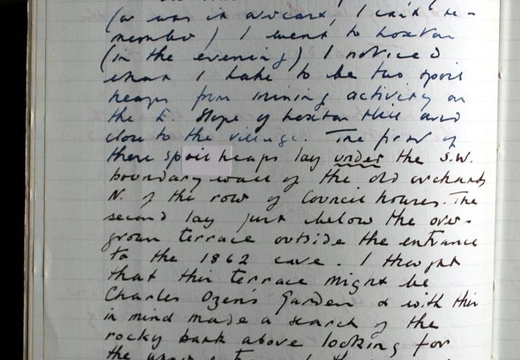 (or was it a week, I can't re-
member) I went to Loxton
(in the evening) I noticed
what I take to be two spoil
heaps from mining activity on
the E. slope of Loxton Hill and
close to the village. The first of
these spoil heaps lay under the S.W.
boundary wall of the old orchard
N. of the row of Council houses. The
second lay just below the over-
grown terrace outside the entrance
to the 1862 cave. I thought
that this terrace might be
Charles Ozen's Garden & with this
in mind made a search of the
rocky bank above looking for
the